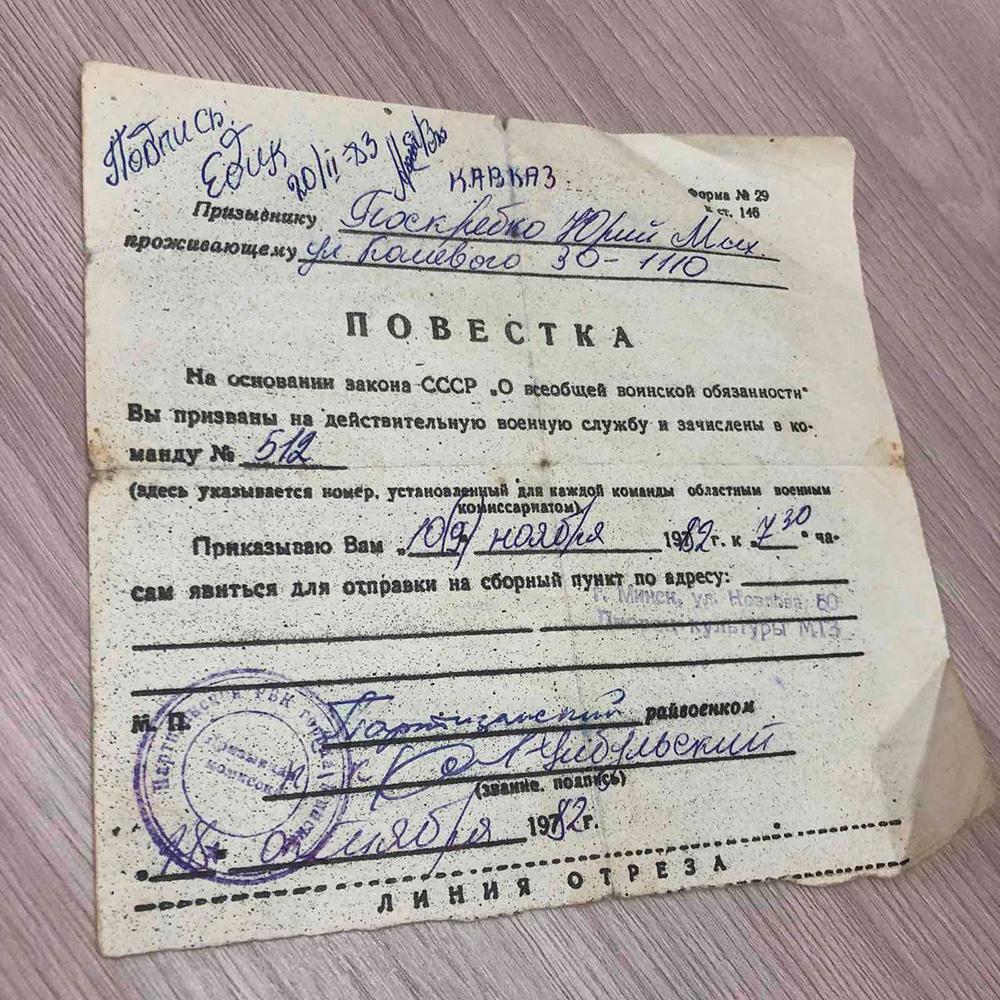 Подпись.
Едик 20/II-83
КАВКАЗ
Форма № 29
к ст. 146
Призывнику Поскребко Юрий Мих.
проживающему ул. 30-1110
ПОВЕСТКА
На основании закона СССР „О всеобщей воинской обязанности"
Вы призваны на действительную военную службу и зачислены в ко-
манду № 512
(здесь указывается номер, установленный для каждой команды областным военным
комиссариатом)
Приказываю Вам „10(9)" ноября 1982г. к „7 30" ча-
сам явиться для отправки на сборный пункт по адресу:
г. Минск, ул. Козлова 60
Дворец культуры МТЗ
М. П. Партизанский райвоенком
п/к Цибульский
(звание, подпись)
„18" октября 1982г.
ЛИНИЯ ОТРЕЗА